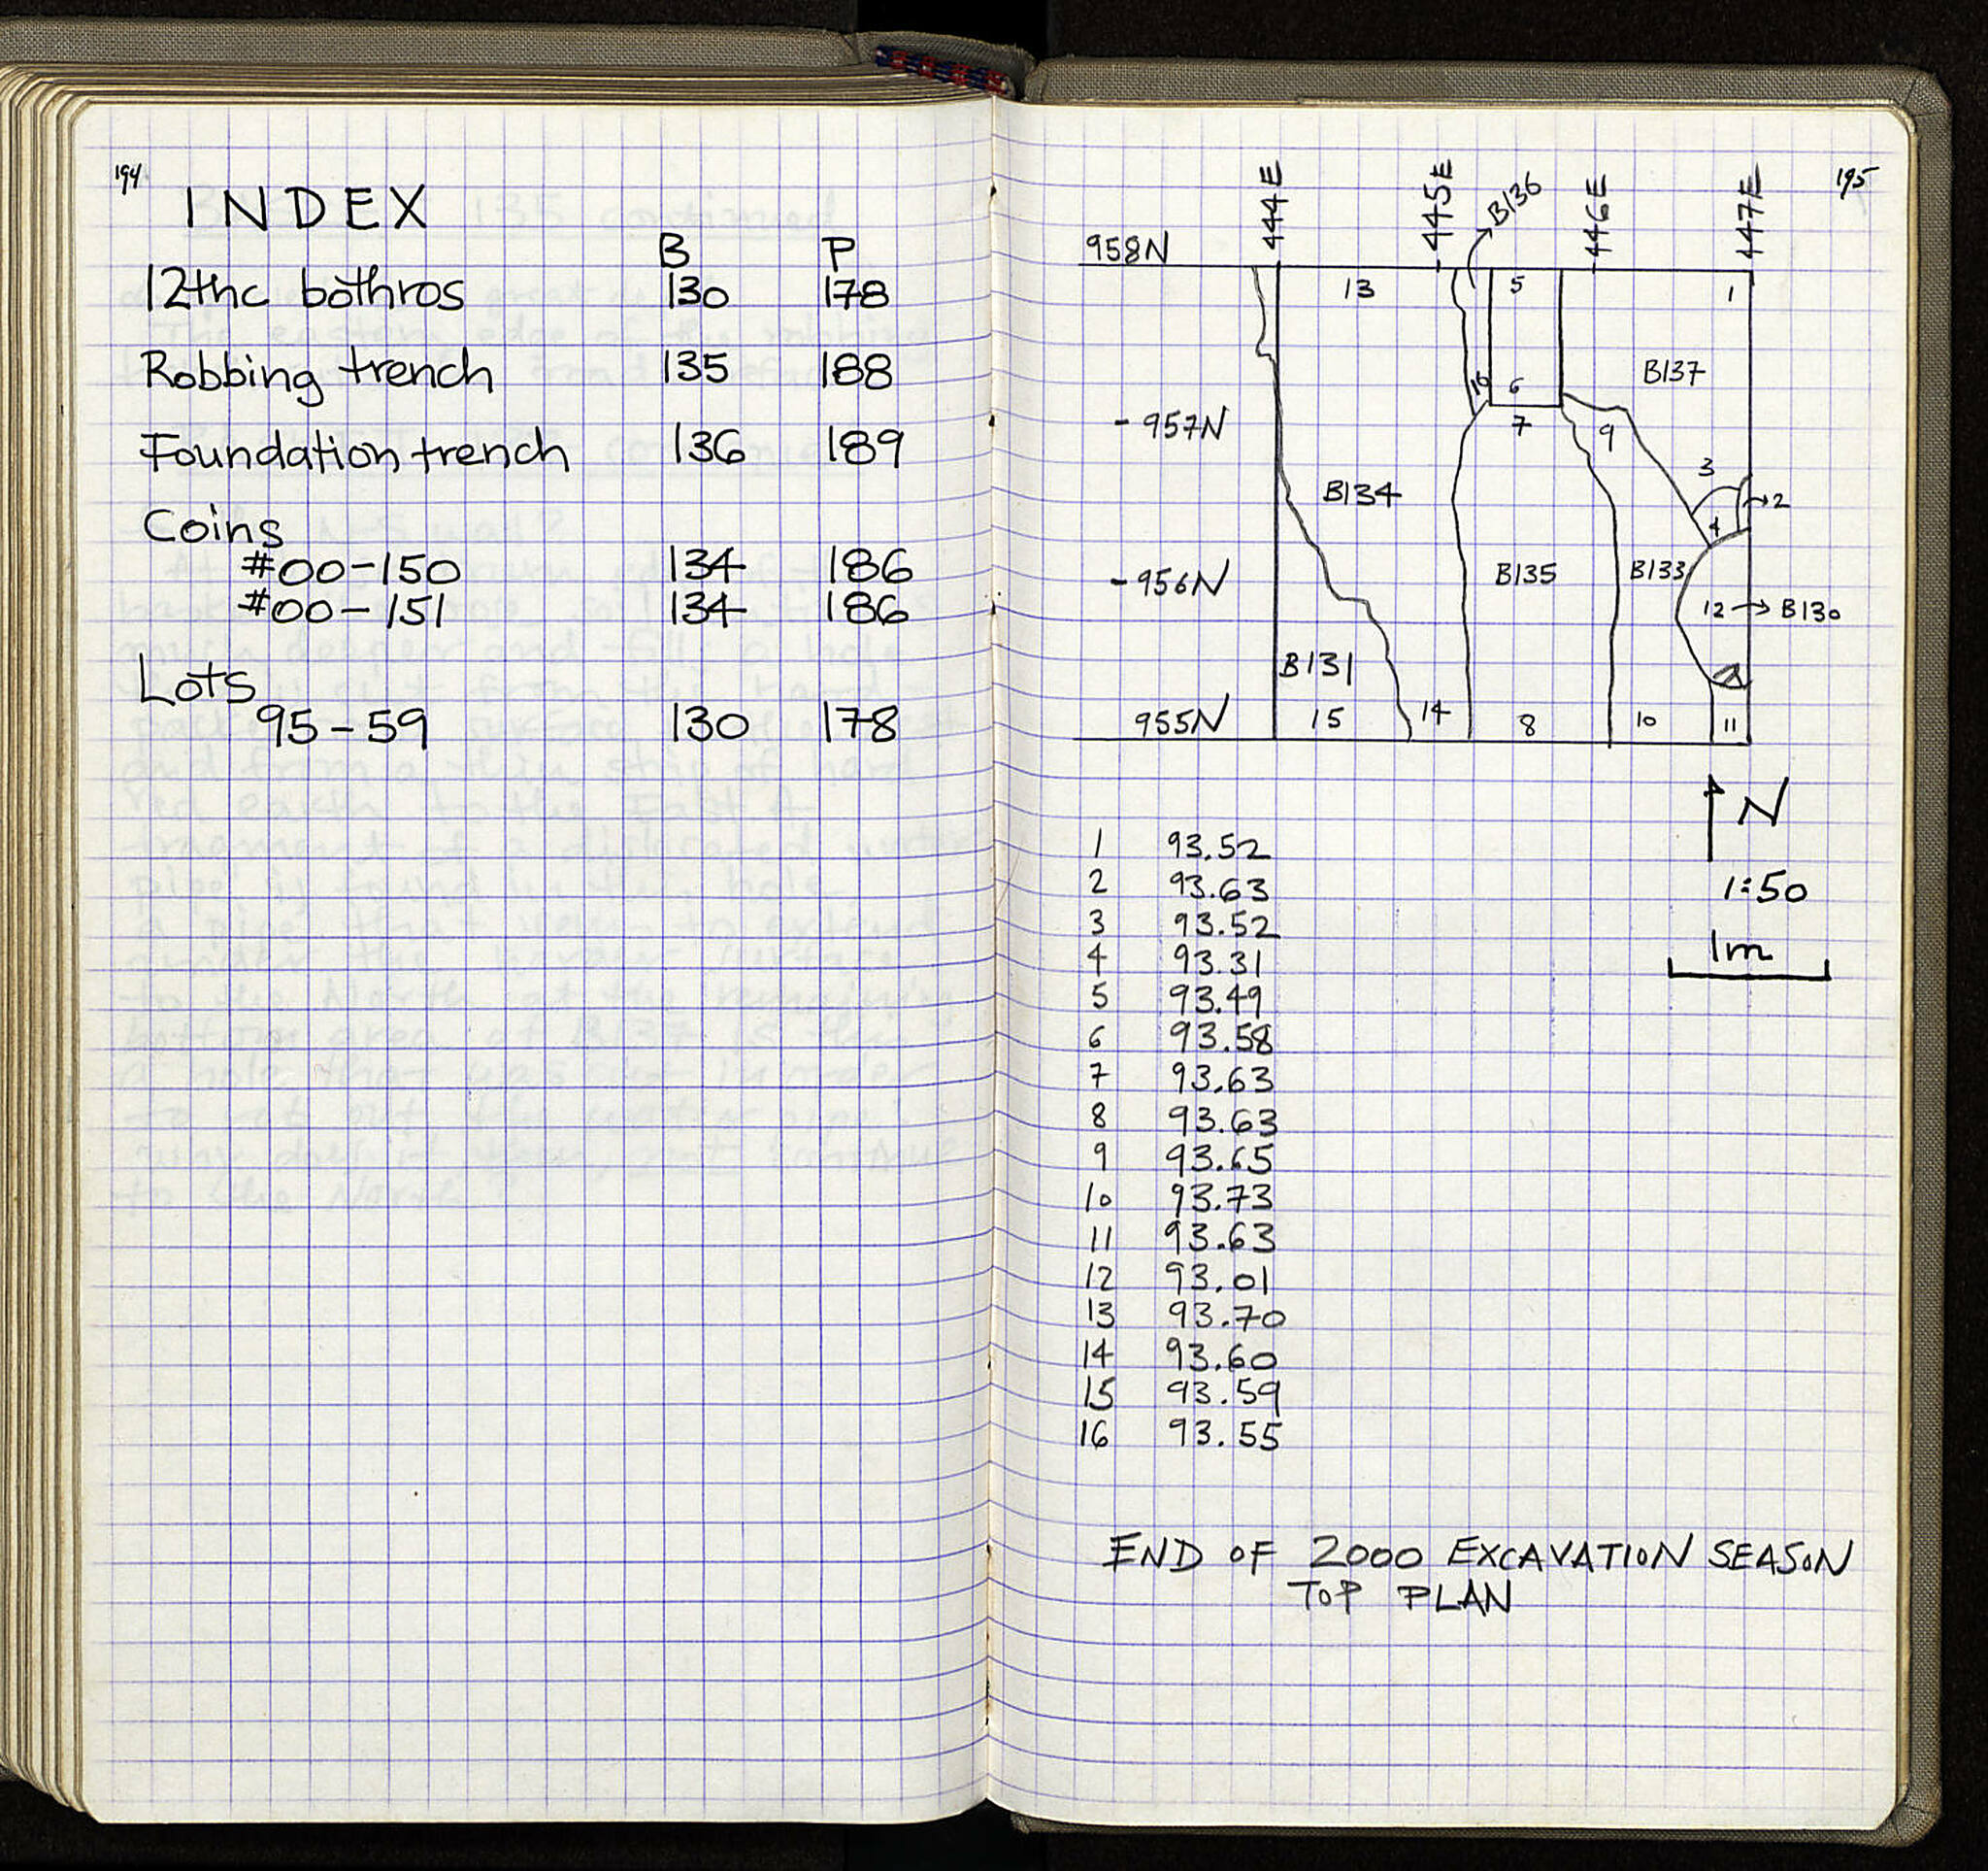 194
INDEX
B P
12thc bothros 130 178
Robbing trench 135 188
Foundation trench 136 189
Coins
#00-150 134 186
#00-151 134 186
Lots
95-59 130 178
195
444E 445E B136 446E 447E
958N
13 5 1
16 6 B137
- 957N 7 9
3
B134 2
4
- 956N B135 B133
12 → B130
B131
955N 15 14 8 10 11
N
1:50
1m
1 93.52
2 93.63
3 93.52
4 93.31
5 93.49
6 93.58
7 93.63
8 93.63
9 93.65
10 93.73
11 93.63
12 93.01
13 93.70
14 93.60
15 93.59
16 93.55
END OF 2000 EXCAVATION SEASON
TOP PLAN